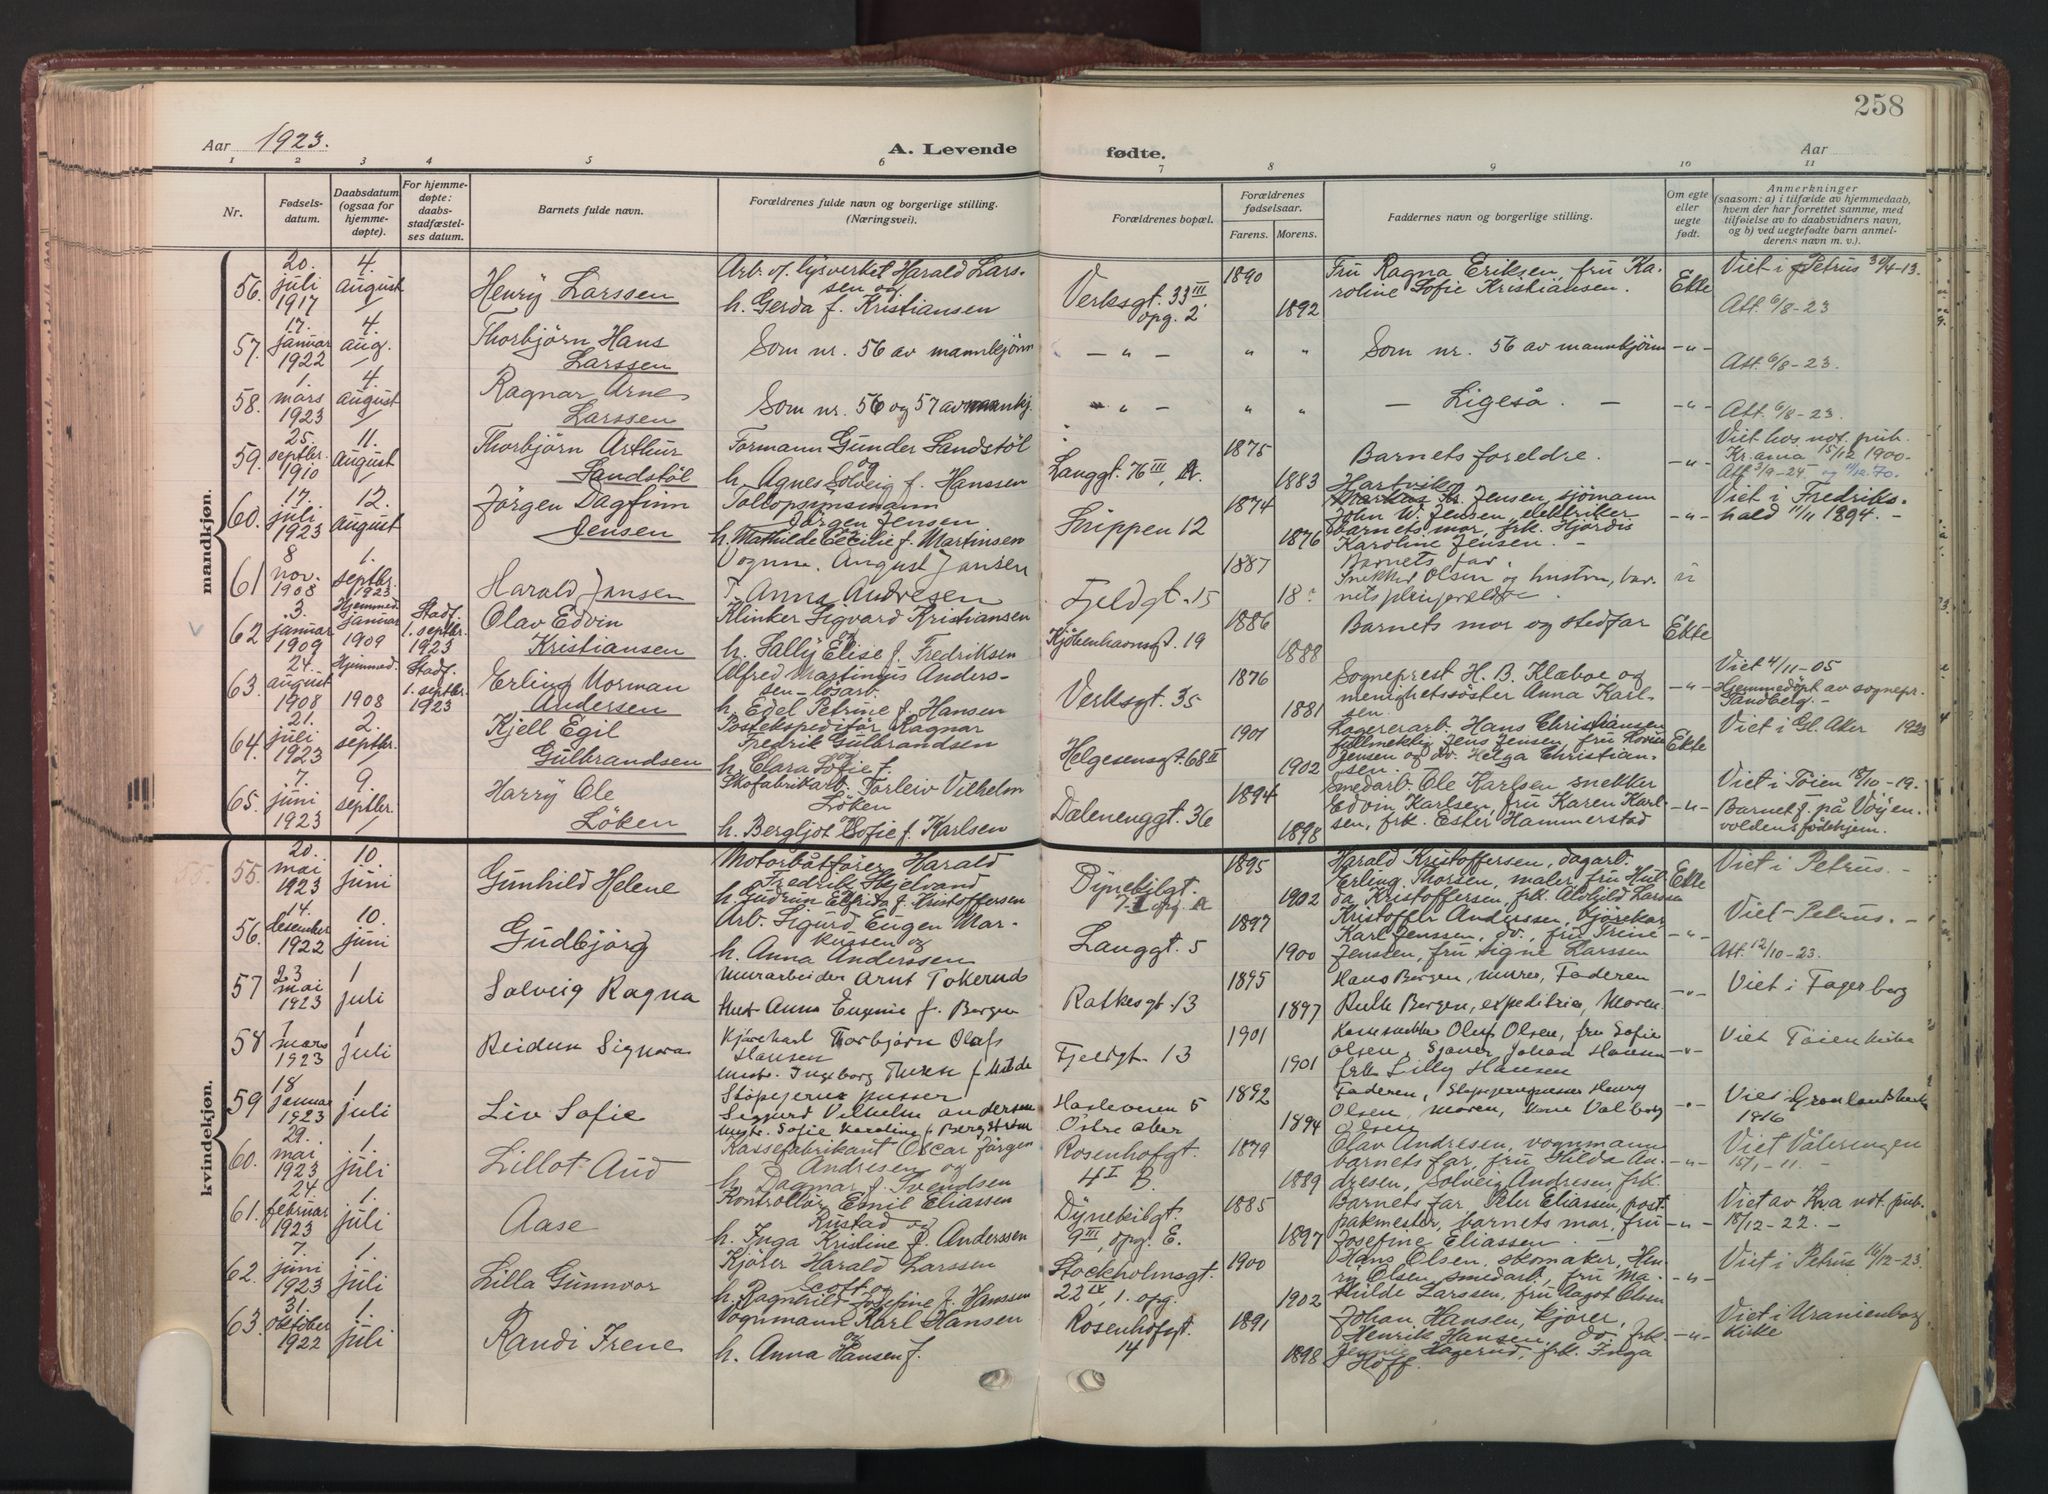 258
Aar 1923.
A. Levende
fødte.
Aar
1 2 3 4 5 6 7 8 9 10 11
Nr.
Fødselsdatum.
Daabsdatum (ogsaa for hjemmedøpte).
For hjemmedøpte: daabsstadfæstelses datum.
Barnets fulde navn.
Forældrenes fulde navn og borgerlige stilling. (Næringsvei).
Forældrenes bopæl.
Forældrenes fødselsaar.
Farens. Morens.
Faddernes navn og borgerlige stilling.
Om egte eller uegte født.
Anmerkninger
(saasom: a) i tilfælde av hjemmedaab, hvem der har forrettet samme, med tilføielse av to daabsvidners navn, og b) ved uegtefødte barn anmelderens navn m. v.).
mandkjøn.
56. 20. juli 1917 4. august Henrÿ Larssen
Arb. v. lysverket Harald Larssen og
h. Gerda f. Kristiansen
Verksgt. 33 III opg. 2
1890 1892
Fru Ragna Eriksen, fru Karoline Sofie Kristiansen. Ekte
Viet i Petrus 30/4-13.
Att. 6/8-23
57. 17. januar 1922 4. aug. Thorbjörn Hans Larssen
Som nr. 56 av mannkjönn
— " — " "
Som nr. 56 av mannkjönn -"-
Att. 6/8-23.
58. 1. mars 1923 4. august Ragnar Arne Larssen
Som nr. 56 og 57 av mannkj.
" " "
— Ligeså. — -"-
Att. 6/8-23.
59. 25. septbr. 1910 11. august Thorbjörn Arthur Sandstöl
Formann Gunder Sandstöl og
h. Agnes Solveig f. Hanssen
Langgt. 76 III, A.
1875 1883
Barnets foreldre. -"-
Viet hos not. pub. Kr.ania 15/12 1900.
Att. 3/9-24
60. 17. juli 1923 12. august Jörgen Dagfinn Jensen
Tollopsynsmann Jörgen Jensen
h. Mathilde Cecilie f. Martinsen
Schippen 12
1874 1876
Hartvik Jensen, sjömann
John W. Jensen, elektriker
barnets mor, frk. Hjördis
Karoline Jensen. -"-
Viet i Fredrikshald 11/11 1894.
61 8 nov. 1908 1. septbr. 1923 Harald Jansen
Vognm. August Jansen
f. Anna Andresen
Fjeldgt. 15
1887 18
Barnets far,
Snekker Olsen og hustru, barnets pleieforeldre
62 3. januar 1909 Hjemmed. januar 1909 Stadf. 1. septbr. 1923 Olav Edvin Kristiansen
Klinker Sigvard Kristiansen og
h. Sallÿ Elise f. Fredriksen
Kjöbenhavnsgt. 19
1886 1888
Barnets mor og stedfar Ekte
63. 24. august 1908 Hjemmed. 1908 Stadf. 1. septbr. 1923 Erling Norman Andersen
Alfred Martinius Anderssen - lösarb.
h. Edel Petrine f. Hansen
Verksgt. 35
1876 1881
Sogneprest H. B. Klæboe og
menighetssöster Anna Karlsen. -"-
Viet 4/11-05
Hjemmedöpt av sognepr. Sandberg.
64. 21. juli 1923 2. septbr. Kjell Egil Gulbrandsen
Postekspeditör Ragnar
Fredrik Gulbrandsen
h. Clara Sofie f.
Helgesensgt. 68 II
1901 1902
Lagererarb. Hans Christiansen
fullmektig Jens Jensen, fru
Jensen og dv. Helga Christiansen. Ekte
Viet i Gl. Aker 1923
65. 7. juni 1923 9. septbr. Harrÿ Ole Löken
Skofabrikarb. Torleiv Vilhelm
Löken og
h. Bergljot Sofie f. Karlsen
Dælenenggt. 36
1894 1898
Smedarb. Ole Karlsen, snekker
Edvin Karlsen, fru Karen Karlsen, frk. Ester Hammerstad -"-
Viet i Töien 18/10-19.
Barnet f. på Vöÿenvoldens födehjem.
kvindekjøn.
55. 20. mai 1923 10. juni Gunhild Helene
Motorbåtförer Harald
Fredrik Skjelvand
h. Gudrun Elfrida f. Kristoffersen
Dÿnekilgt. 7 I opg. A
1895 1902
Harald Kristoffersen, dagarb.
Erling Thorsen, maler, fru Hulda Kristoffersen, frk. Aldhild Larsen Ekte
Viet i Petrus.
56. 14. desember 1922 10. juni Gudbjörg
Arb. Sigurd Eugen Markussen og
h. Anna Anderssen
Langgt. 5
1897 1900
Kristoffer Anderssen, kjörekar,
Karl Jenssen, do., fru Trine
Jensen, fru Signe Larssen -"-
Viet - Petrus.
Att. 12/10-23.
57 23 mai 1923 1 juli Solveig Ragna
Murarbeider Arnt Tokerud
Hust. Anna Eugenie f. Bergen
Ratkesgt. 13
1895 1897
Hans Bergen, murer, Faderen
Ruth Bergen, expeditrice, Moren -"-
Viet i Fagerborg
58 7 mars 1923 1 juli Reidun Signora
Kjörekarl Thorbjörn Olaf Hansen
Hustr. Ingeborg
Fjeldgt. 13
1901 1901
Olsen, fru Sofie
Olsen, Johan Hansen
frk Lilly Hansen -"-
Viet Töien kirke
59 18 januar 1923 1. juli Liv Sofie
Støpejernspusser
Sigurd Vilhelm Andersen
Hustr. Sofie Karoline f. Bergström
Hasleveien 5 Østre Aker
1892 1894
Faderen, Henry
Olsen, Moren, Valborg
Olsen -"-
Viet i Grønlands kirke
1916
60. 29. mai 1923 1. juli Lillot Aud
Kassefabrikant Oscar Jörgen
Andresen og
h. Dagmar f. Svendsen
Rosenhofgt. 4 I B.
1879 1889
Olav Andresen, vognmann
barnets far, fru Hilda Andresen, Solveig Andresen, frk. -"-
Viet Vålerengen
15/1-11.
61. 24 februar 1923 1. juli Aase
Kontrollör Emil Eliassen
Rustad og
h. Inga Kristine f. Anderssen
Dÿnekilgt. 9 III, opg. E.
1885 1897
Barnets far, Peter Eliassen, post
pakmester, barnets mor, fru
Josefine Eliassen. -"-
Viet av Kra not. pub.
18/12-22.
62. 7. juni 1923 1. juli Lilla Gunnvor
Kjörer Harald Larssen
h. Ragnhild Josefine f. Hanssen
Stockholmsgt. 22 IV, 1. opg.
1900 1902
Hans Olsen, skomaker, Henry Olsen, smedarb., fru Mathilde Larssen, fru Aagot Olsen -"-
Viet i Petrus 16/12-23.
63. 31. oktober 1922 1. juli Randi Irene
Vognmann Karl Hansen og
h. Anna Hansen f.
Rosenhofgt. 14
1891 1898
Johan Hansen, kjörer,
Henrik Hansen, do. frk.
Jennie Hagerud, frk. Inga
Hoff. -"-
Viet i Uranienborg kirke